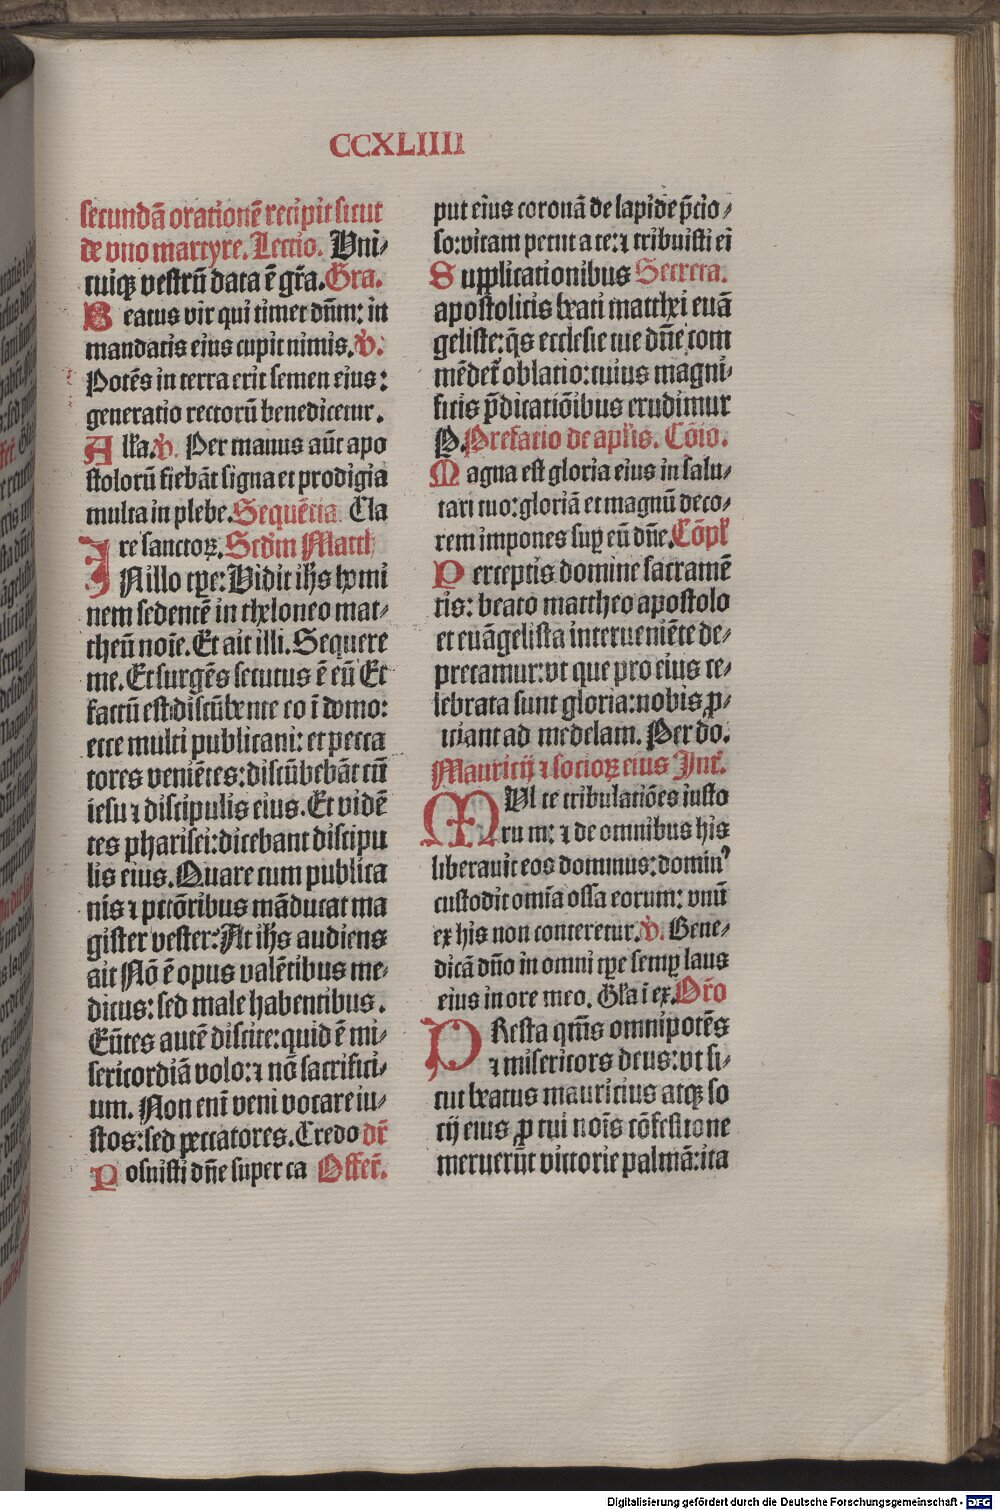 CCXLIIII
secundā orationē recipit sicut
de vno martyre. Lectio. Vni⸗
cuiqꝫ vestrū data ē gr̄a. Gra.
Beatus vir qui timet dn̄m: in
mandatis eius cupit nimis. v̄.
Potēs in terra erit semen eius:
generatio rectorū benedicetur.
Alla. v̄. Per manus aūt apo
stolorū fiebāt signa et prodigia
multa in plebe. Sequētia Cla
re sanctoꝝ. Scdm Matth
INillo tꝑe: Vidit ihs homi
nem sedentē in theloneo mat⸗
theū noīe. Et ait illi. Sequere
me. Et surgēs secutus ē eū Et
factū est discūbente eo ī domo:
ecce multi publicani: et pecca
tores veniētes: discūbebāt cū
iesu ⁊ discipulis eius. Et vidē
tes pharisei: dicebant discipu
lis eius. Quare cum publica
nis ⁊ pctōribus māducat ma
gister vester: At ihs audiens
ait Nō ē opus valētibus me⸗
dicus: sed male habentibus.
Eūtes autē discite: quid ē mi⸗
sericordiā volo: ⁊ nō sacrifici⸗
um. Non enī veni vocare iu⸗
stos: sed peccatores. Credo dr̄
Posuisti dn̄e super ca Offer̄.
put eius coronā de lapide p̄cio⸗
so: vitam petiit a te: ⁊ tribuisti ei
Supplicationibus Secreta.
apostolicis beati matthei euā
geliste: q̄s ecclesie tue dn̄e com
mēdet᷑ oblatio: cuius magni⸗
ficis p̄dicatiōibus erudimur
P. Prefatio de apl̄is. Cōio.
Magna est gloria eius in salu⸗
tari tuo: gloriā et magnū deco⸗
rem impones suꝑ eū dn̄e. Cōpl̄
Perceptis domine sacramē
tis: beato mattheo apostolo
et euāgelista interueniēte de⸗
precamur: vt que pro eius ce⸗
lebrata sunt gloria: nobis ꝓ⸗
ficiant ad medelam. Per do.
Mauricij ⁊ socioꝝ eius Int̄.
MVl te tribulatiōes iusto
rum: ⁊ de omnibus his
liberauit eos dominus: domin⁹
custodit omīa ossa eorum: vnū
ex his non conteretur. v̄. Bene⸗
dicā dn̄o in omni tꝑe semꝑ laus
eius in ore meo. Gl̄a ī ex. Or̄o
PResta qm̄s omnipotēs
⁊ misericors deus: vt si⸗
cut beatus mauricius atqꝫ so
cij eius ꝓ tui noīs cōfessione
meruerūt victorie palmā: ita
Digitalisierung gefördert durch die Deutsche Forschungsgemeinschaft - DFG